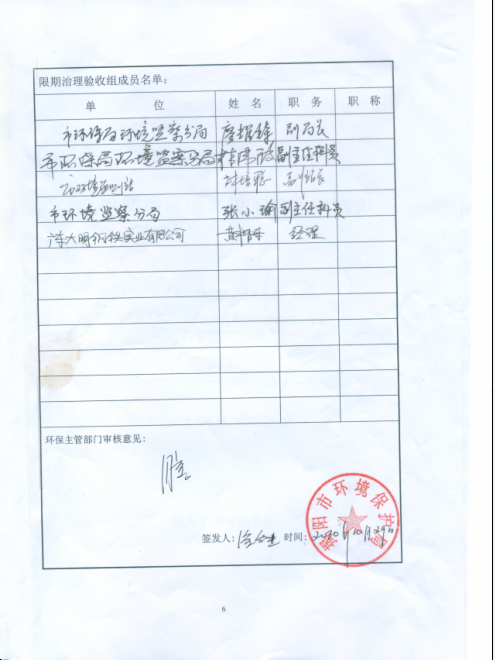 限期治理验收组成员名单：
单 位 姓 名 职 务 职 称
市环保局环境监察分局 副局长
市环保局环境监察分局 副主任科员
市环境监测站 副站长
市环境监察分局 张小瑜 副主任科员
广东大明钢铁实业有限公司 经理
环保主管部门审核意见：
揭阳市环境保护局
签发人： 时间：2010年10月29日
6